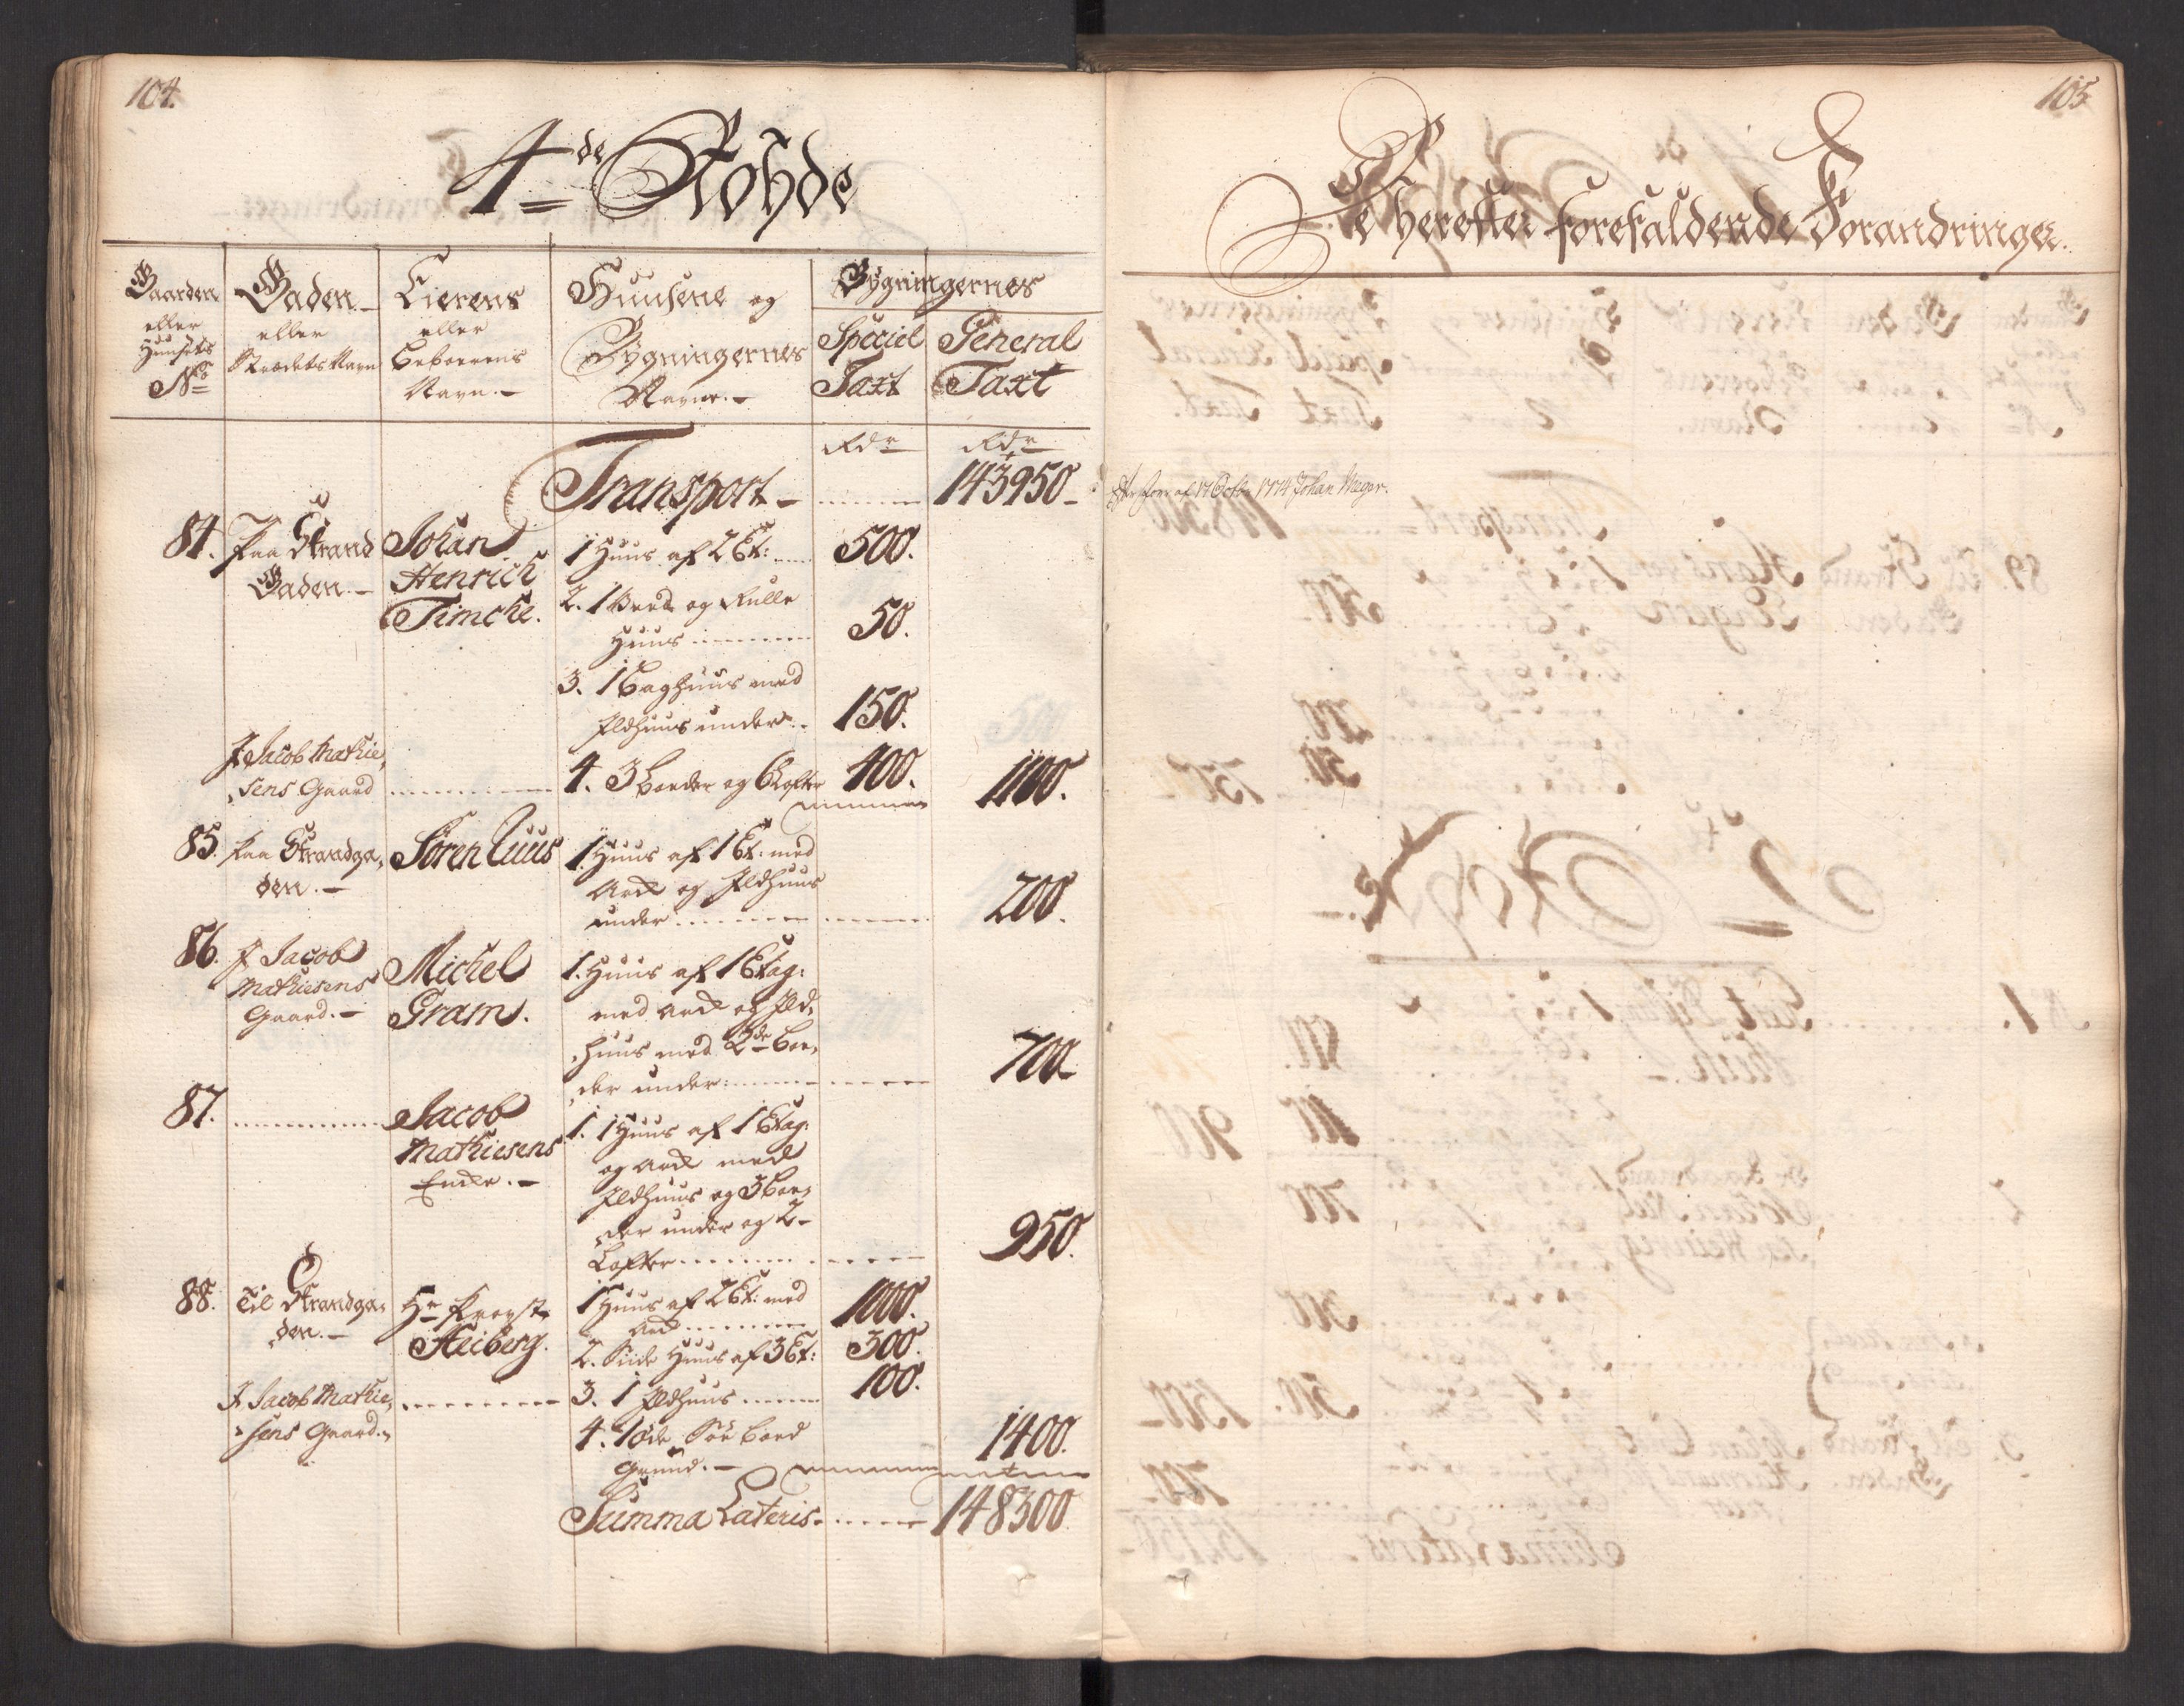 104.
4de Rohde
Gaarden eller Huusets No
Gaden eller Strædets Navn
Eierens eller Beboerens Navn.
Huusene og Bygningernes Navne.
Bygningernes
Speciel Taxt
General Taxt
Rdr Rdr
Transport 143950
84. Paa Strand Johan 1 Huus af 2 Et: 500.
Gaden. Henrich 2. 1 og Rulle
Timche. Huus 50.
3. 1 Baghuus med
Ildhuus under 150.
J Jacob Mathie,
sens Gaard 4. 3 Boeder og 6 Lofter 400. 1100.
85. Paa Strandga, Søren Luus 1. Huus af 1 Et. med
den. Ark og Ildhuus
under 200.
86. J Jacob Michel 1. Huus af 1 Etag:
Mathiesens Gram. med Ark og Ild,
Gaard. huus med 2de Boe,
der under: 700
87. Jacob 1. 1 Huus af 1 Etag:
Mathiesens og Ark med
Enke. Ildhuus og 3 Boe,
der under og 2
Lofter 950.
88. Til Strandga, Hr Provst 1 Huus af 2 Et: med
den. Heiberg. Ark 1000.
2. Siide Huus af 3 Et: 300.
J Jacob Mathie, 3. 1 Ildhuus 100.
sens Gaard. 4. 1 øde Søe Boed
Grund. 1400.
Summa Lateris 148300
105
De herefter forefaldende Forandringer.
af 17 Octbr 1774 Johan Meyer.